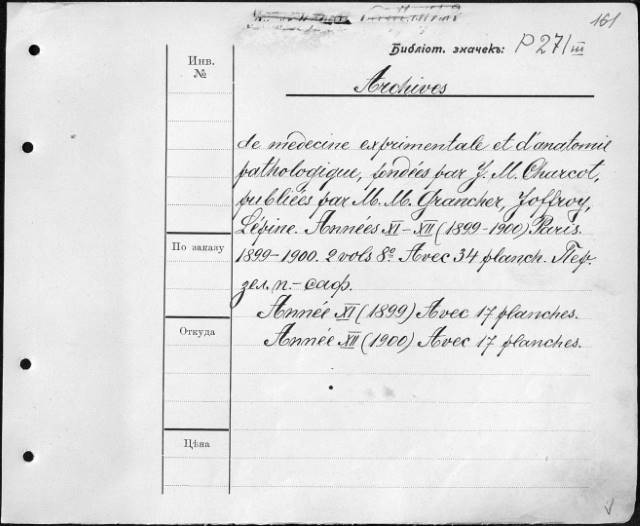 161
Библіот. значекъ: P 271/III
Archives
Инв.
№
de medecine exprimentale et d'anatomie
pathologique, fondées par J. M. Charcot,
publiées par M. M. Grancher, Joffroy,
Lépine. Années XI–XII (1899-1900) Paris.
По заказу
1899-1900. 2 vols 8º. Avec 34 planch. Пер.
зел. п.-саф.
Année XI (1899) Avec 17 planches.
Откуда
Année XII (1900) Avec 17 planches.
Цѣна